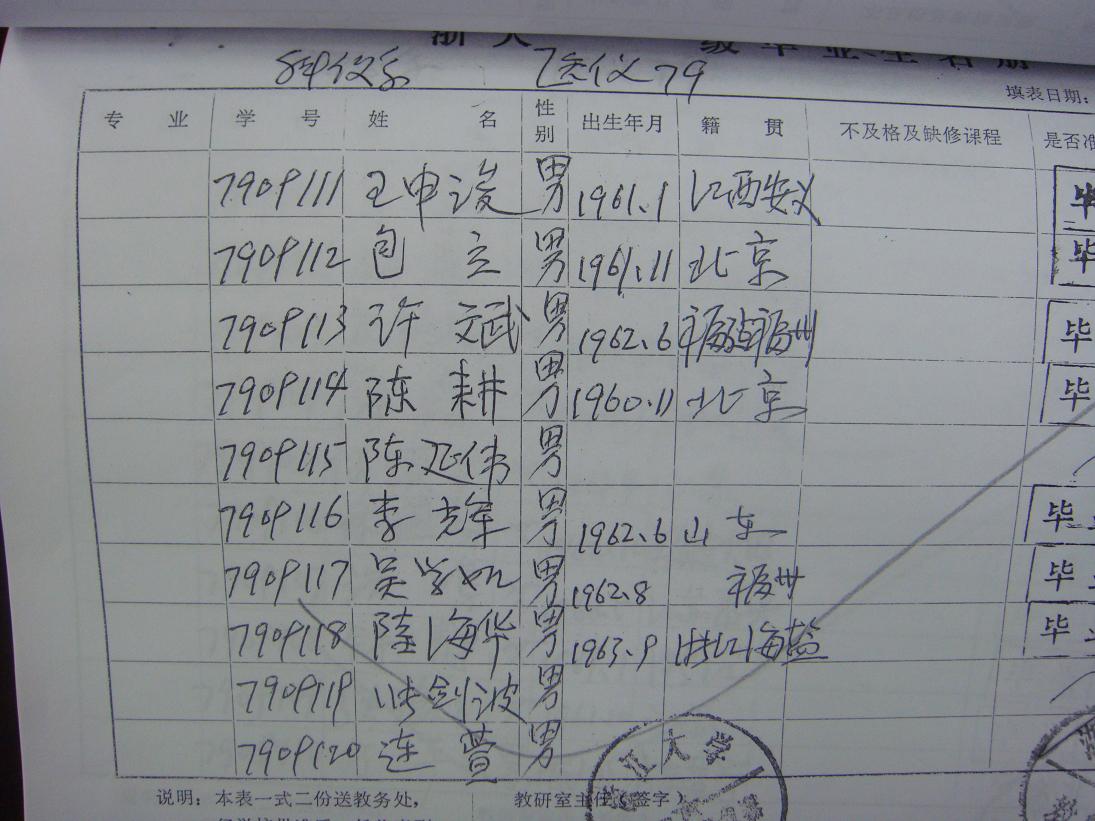 浙大 级毕业生名册
科仪系 医仪79
填表日期:
专业 学号 姓名 性别 出生年月 籍贯 不及格及缺修课程 是否准
7909111 王申浚 男 1961.1 江西安义 毕
7909112 包立 男 1961.11 北京 毕
7909113 许文武 男 1962.6 福建福州 毕
7909114 陈耕 男 1960.11 北京 毕
7909115 陈延伟 男
7909116 李光军 男 1962.6 山东 毕
7909117 吴学如 男 1962.8 福州 毕
7909118 陆海华 男 1963.9 浙江海盐 毕
7909119 张剑波 男
7909120 连普 男
江大学
说明: 本表一式二份送教务处, 教研室主任(签字)